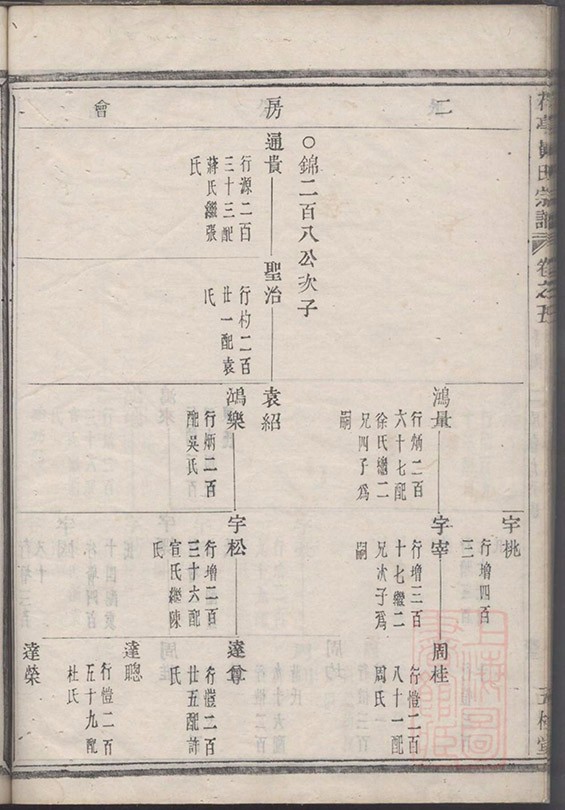 宗譜
卷之五
二
房
會
○錦二百八公次子
通貴
行源二百
三十三配
蔣氏繼張
氏
聖治
行杓二百
廿一配袁
氏
鴻量
行炳二百
六十七配
徐氏繼二
兄四子爲
嗣
袁紹
鴻樂
行炳二百
配吳氏
宇桃
行增四百
三
宇宰
行增三百
十七繼二
兄次子爲
嗣
宇松
行增二百
三十六配
宣氏繼陳
氏
周桂
行愷二百
八十一配
周氏
達尊
行愷二百
廿五配許
氏
達聰
行愷二百
五十九配
杜氏
達榮